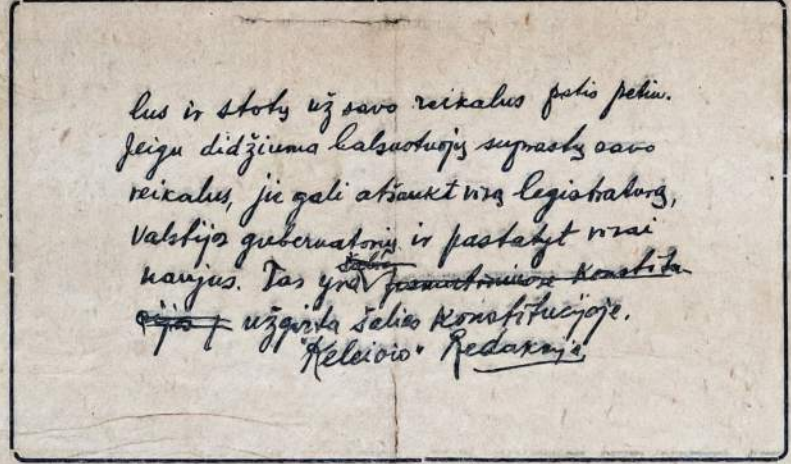 lus ir stotų už savo reikalus petis petin.
Jeigu didžiuma balsuotojų suprastų savo
reikalus, jie gali atšaukt visą legislaturą,
Valstijos gubernatorių ir pastatyt visai
naujus. Tas yra
užgirta šalies Konstitucijoje.
"Keleivio" Redakcija